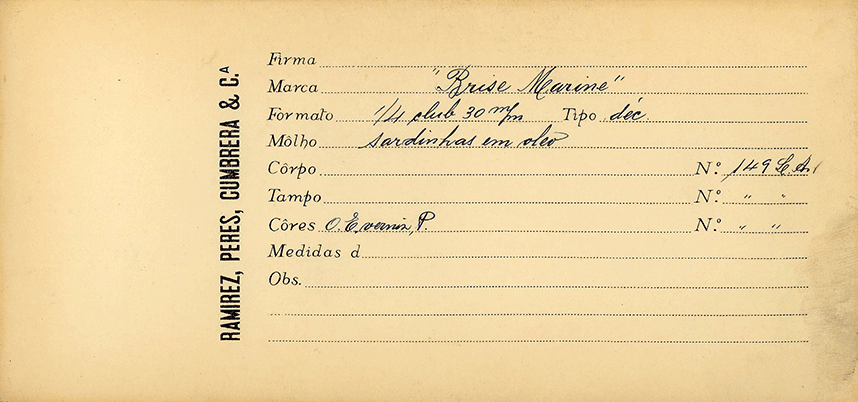 RAMIREZ, PERES, CUMBRERA & C.ᴬ
Firma
Marca "Brise Marine"
Formato 1/4 club 30 m/m Tipo déc.
Môlho sardinhas em oleo
Côrpo N.º 149 L.A.
Tampo N.º " "
Côres O. E. vernix, P. N.º " "
Medidas d
Obs.